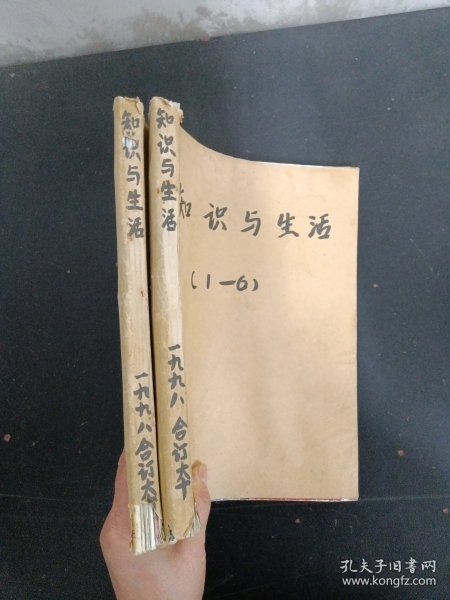 知识与生活
一九九八合订本
知识与生活
一九九八合订本
知识与生活
(1—6)
孔夫子旧书网
www.kongfz.com